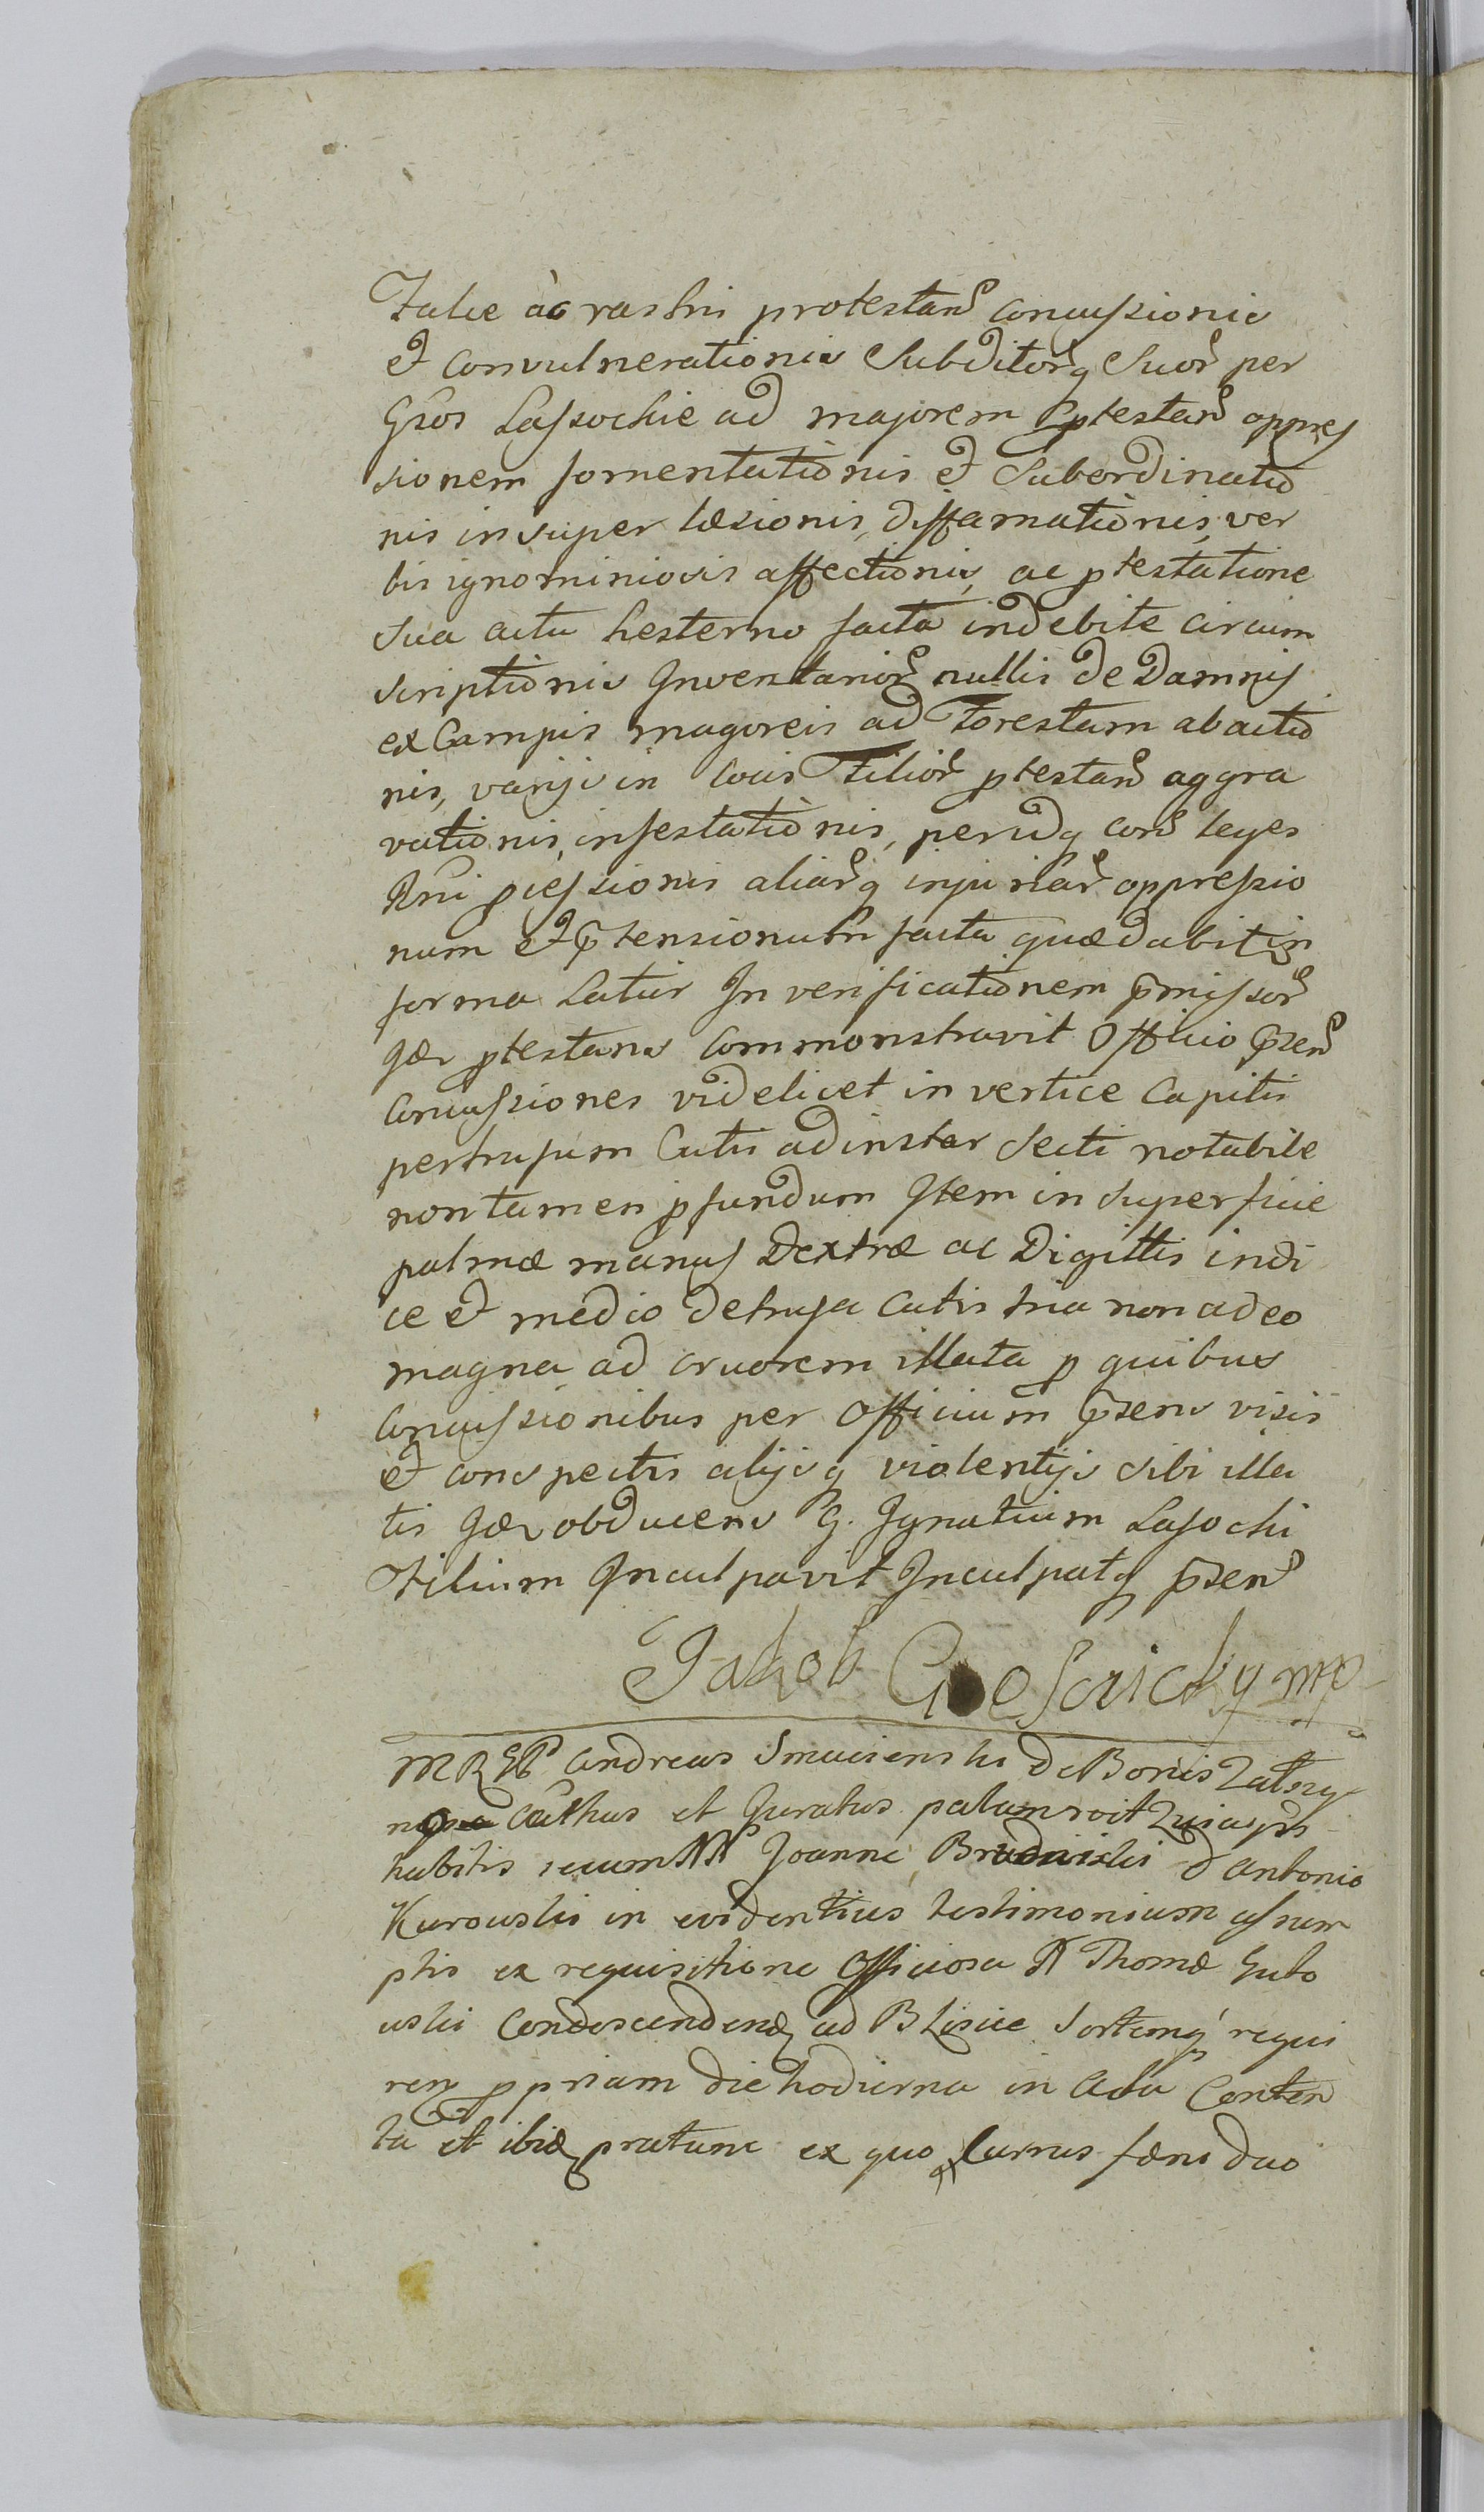 Falce ac rastri protestan concussionis
et convulnerationis Subditorq Suor per
Gsos Lassockie ad majorem ptestan oppres
sionem fomentationis et Subordinatio
nis insuper læsionis, diffamationis, ver
bis ignominiosis affectionis, ac ptestatione
sua actu hesterno facta indebite circum
scriptionis Inventarior nullis de Damnis
ex Campis magoreis ad Forestam abactio
nis, varijs in locis Filior ptestan aggra
vationis, infestationis, perudq con leges
Rni pcessionis aliarq injuriar oppressio
num et ptensionum facta quæ dabit in
forma Latius In verificationem pmissor
Idem ptestans Commonstravit Officio psen
Concussiones videlicet in vertice Capitis
pertrusum Cutis adinstar Secti notabile
non tamen pfundum Item in superficie
palmæ manus Dextræ ac Digittis indi
ce et medio detrusa Cutis tria non adeo
magna ad cruorem illata p quibus
Concussionibus per Officium psens visis
et conspectis alijsq violentijs sibi illa
tis Idem obducens G. Ignatium Lasocki
Filium Inculpavit Inculpatq psen
Jakob mp
M Andreas Smacienski de Bonis
Cathus et Juratus palam roit Quia is
habitis secum NN Joanne Brudnicki et Antonio
Kurowski in evidentius testimonium assum
ptis ex requisitione Officiosa N Thomæ Guto
wski Condescenden ad B Lisice Sortemq requi
ren ppriam die hodierna in Acta Conten
ta et ibid pratum ex quo Currus fæni duo